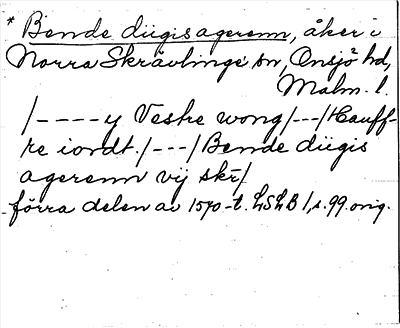 * Bende diigisagerenn, åker i
Norra Skrävlinge sn, Onsjö hd,
Malm. l.
/----y Vestre wong/---/Hauff-
re iordt./---/Bende diigis
agerenn vij skr/
förra delen av 1570-t. LSLB 1, s. 99. orig.